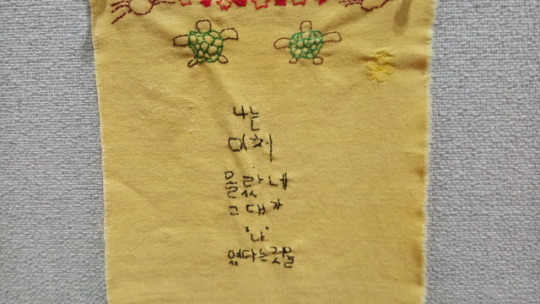 나는
미처
몰랐네
그대가
"나"
였다는 것을